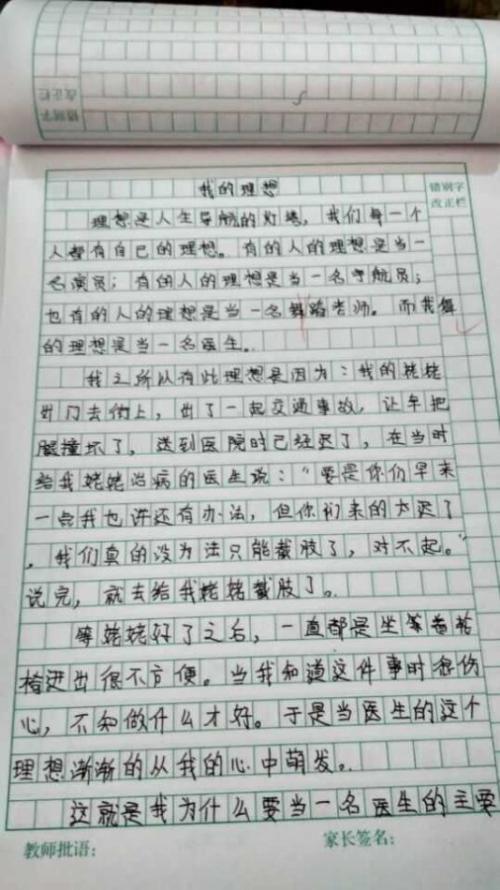 错别字
改正栏
我的理想
错别字
改正栏
理想是人生导航的灯塔，我们每一个
人都有自己的理想。有的人的理想是当一
名演员；有的人的理想是当一名宇航员；
也有的人的理想是当一名舞蹈老师。而我
的理想是当一名医生。
我之所以有此理想是因为：我的姥姥
出门去街上，出了一起交通事故，让车把
腿撞坏了，送到医院时已经迟了，在当时
给我姥姥治病的医生说：“要是你们早来
一点我也许还有办法，但你们来的太迟了
，我们真的没为法只能截肢了，对不起。”
说完，就去给我姥姥截肢了。
等姥姥好了之后，一直都是坐
进出很不方便。当我知道这件事时很伤
心，不知做什么才好。于是当医生的这个
理想渐渐的从我的心中萌发。
这就是我为什么要当一名医生的主要
教师批语：
家长签名：